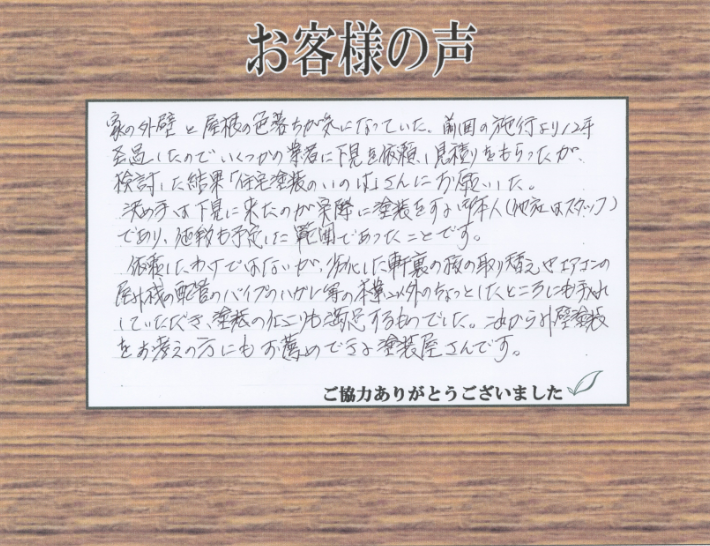 お客様の声
家の外壁と屋根の色落ちが気になっていた。前回の施行より12年
経過したのでいくつかの業者に下見を依頼し見積りをもらったが、
検討した結果「住宅塗装のいのは」さんにお願いした。
決め手は下見に来たのが実際に塗装をする職人(他社はスタッフ)
であり、価格も予定した範囲であったことです。
依頼したわけではないが、劣化した軒裏の板の取り替えやエアコンの
屋外機の配管のパイプのハガレ等の本業以外のちょっとしたところにも手入れ
していただき、塗装の仕上りも満足するものでした。これから外壁塗装
をお考えの方にもお薦めできる塗装屋さんです。
ご協力ありがとうございました